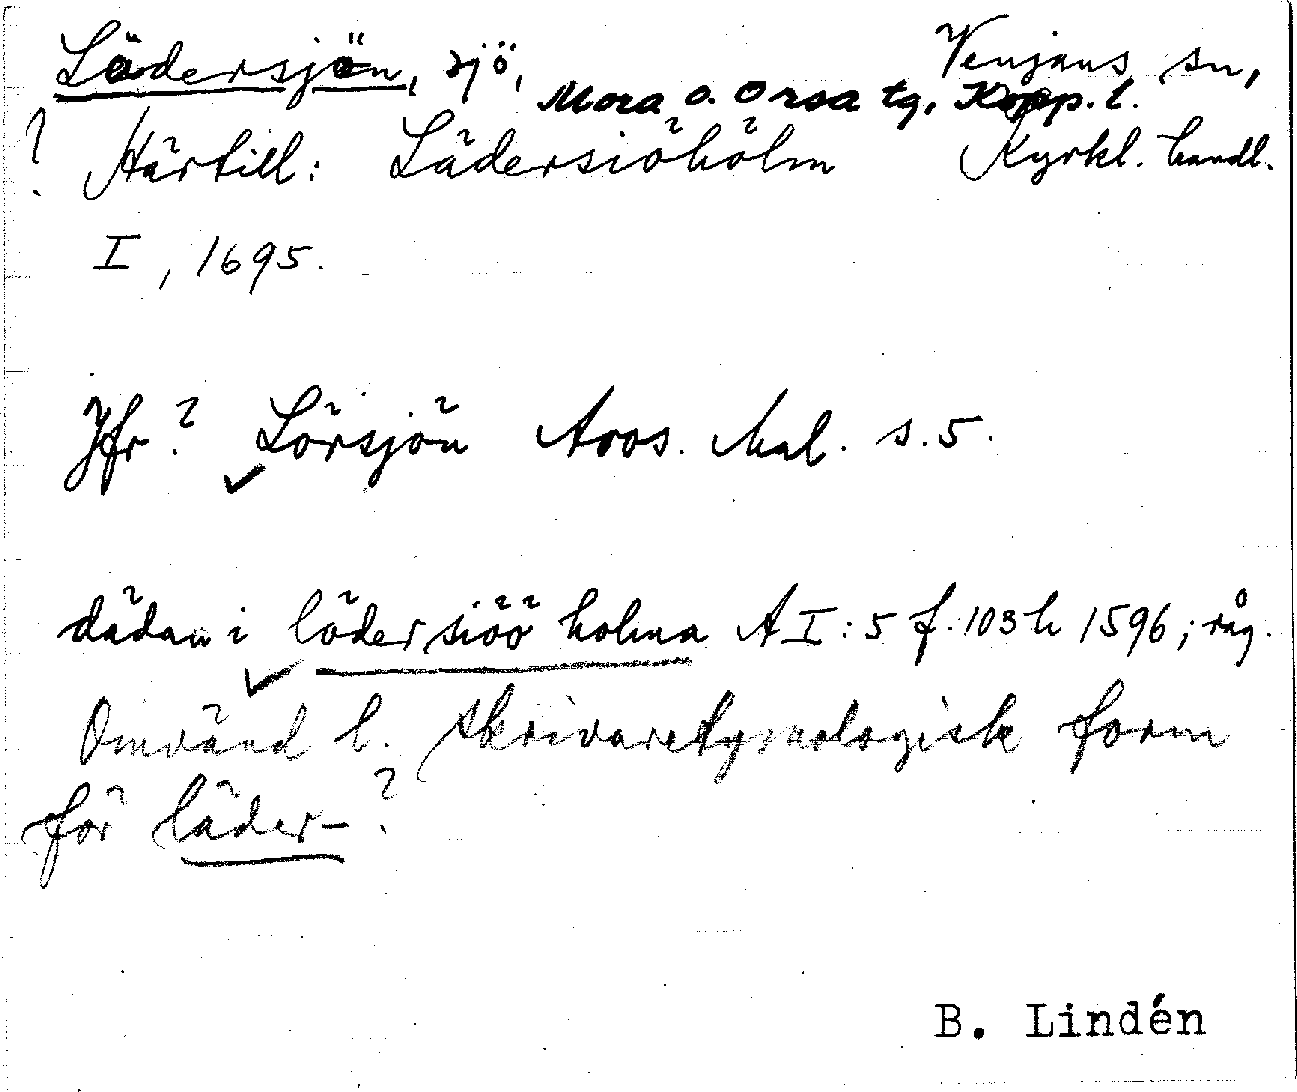 Lödersjön, sjö, Venjans sn,
Mora o. Orsa tg, Kopp. l.
? Härtill: Lädersiöholm Kyrkl. handl.
I, 1695.
Jfr? Lörsjön Aros. Mal. s. 5.
dädan i lödersiöö holma A I: 5 f. 103 h 1596; råg.
Omvänd l. skrivaretymologisk form
för läder-?
B. Lindén